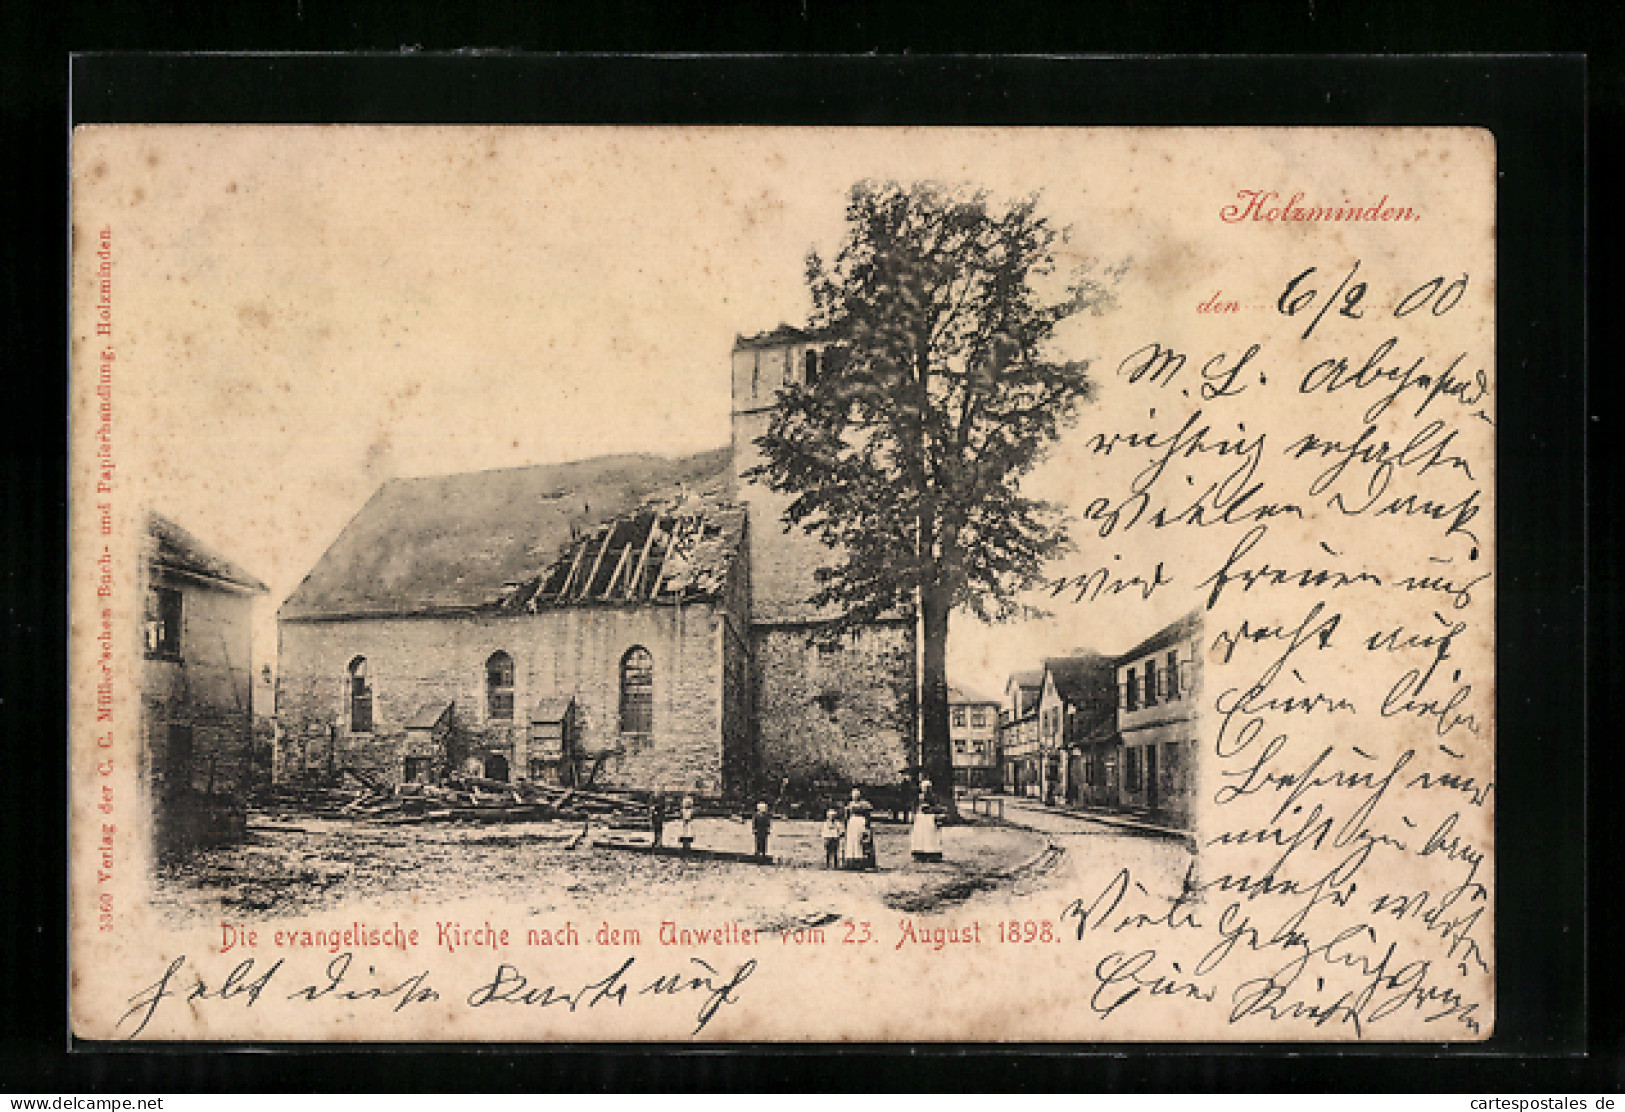 Holzminden.
den 6/2 00
M. L. Abgesand
richtig erhalten
Vielen Dank
wir freuen uns
recht auf
Euren lieben
Besuch und
nicht zu lang
mehr warten
Viele herzliche Grüße
Euer
Die evangelische Kirche nach dem Unwetter vom 23. August 1898.
hebt diese Karte auf
5360 Verlag der C. C. Müller'schen Buch- und Papierhandlung, Holzminden.
cartespostales de
www.cartespostales.eu